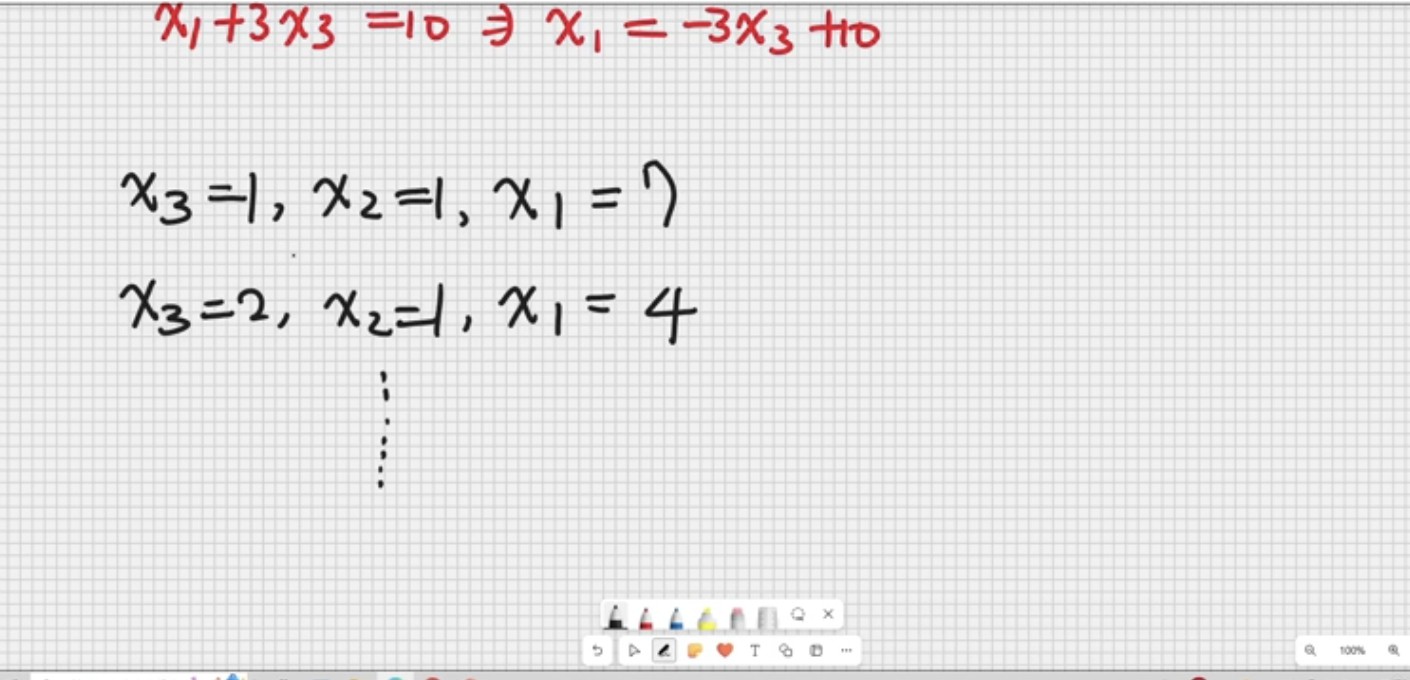 x₁+3x₃=10 ⇒ x₁=-3x₃+10
x₃=1, x₂=1, x₁=7
x₃=2, x₂=1, x₁=4
T
100%